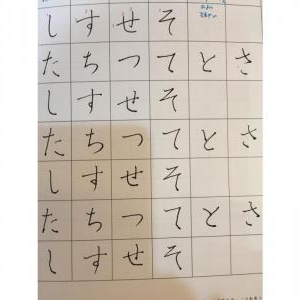 し す せ そ
た ち つ て と さ
し す せ そ
た ち つ て と さ
し す せ そ
た ち つ て と さ
し す せ そ